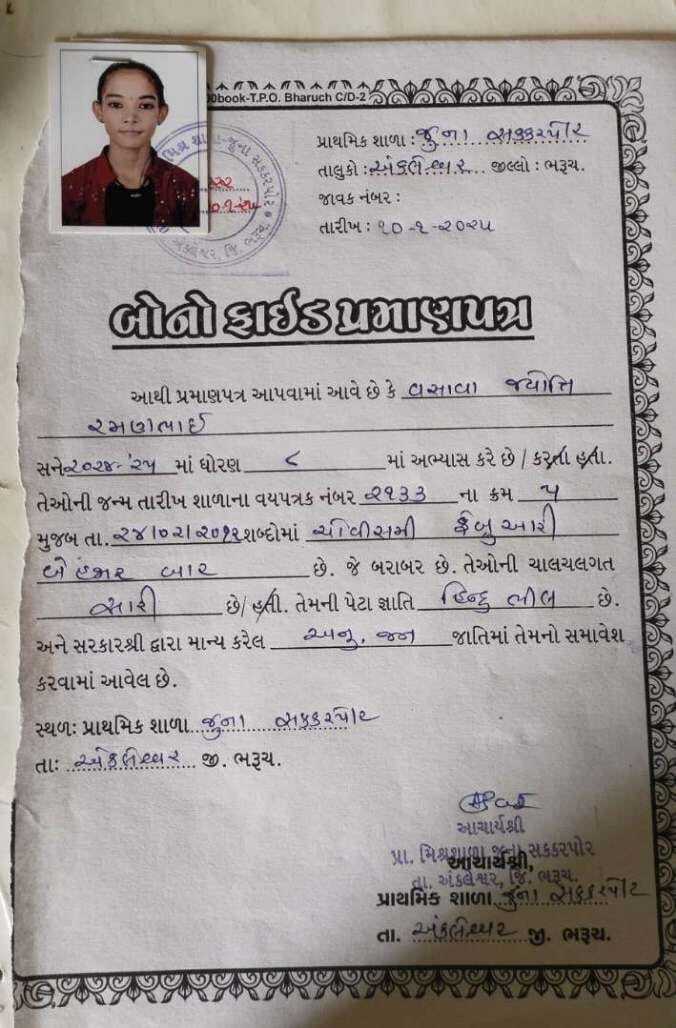 00book-T.P.O. Bharuch C/D-2
પ્રાથમિક શાળા : જુના સક્કરપોર
તાલુકો : અંકલેશ્વર જીલ્લો : ભરૂચ.
જાવક નંબર :
તારીખ : ૧૦-૧-૨૦૨૫
બોનો ફાઈડ પ્રમાણપત્ર
આથી પ્રમાણપત્ર આપવામાં આવે છે કે વસાવા જ્યોતિ
રમણભાઈ
સને ૨૦૨૪-'૨૫ માં ધોરણ ૮ માં અભ્યાસ કરે છે / કરતા હતા.
તેઓની જન્મ તારીખ શાળાના વયપત્રક નંબર ૨૧૩૩ ના ક્રમ ૫
મુજબ તા. ૨૪/૦૨/૨૦૧૨ શબ્દોમાં ચોવીસમી ફેબ્રુઆરી
બે હજાર બાર છે. જે બરાબર છે. તેઓની ચાલચલગત
સારી છે/ હતી. તેમની પેટા જ્ઞાતિ હિન્દુ ભીલ છે.
અને સરકારશ્રી દ્વારા માન્ય કરેલ અનુ. જન જાતિમાં તેમનો સમાવેશ
કરવામાં આવેલ છે.
સ્થળ: પ્રાથમિક શાળા જુના સક્કરપોર
તા: અંકલેશ્વર જી. ભરૂચ.
આચાર્યશ્રી
પ્રા. મિશ્રશાળા જુના સક્કરપોર
આચાર્યશ્રી,
તા. અંકલેશ્વર, જિ. ભરૂચ.
પ્રાથમિક શાળા જુના સક્કરપોર
તા. અંકલેશ્વર જી. ભરૂચ.